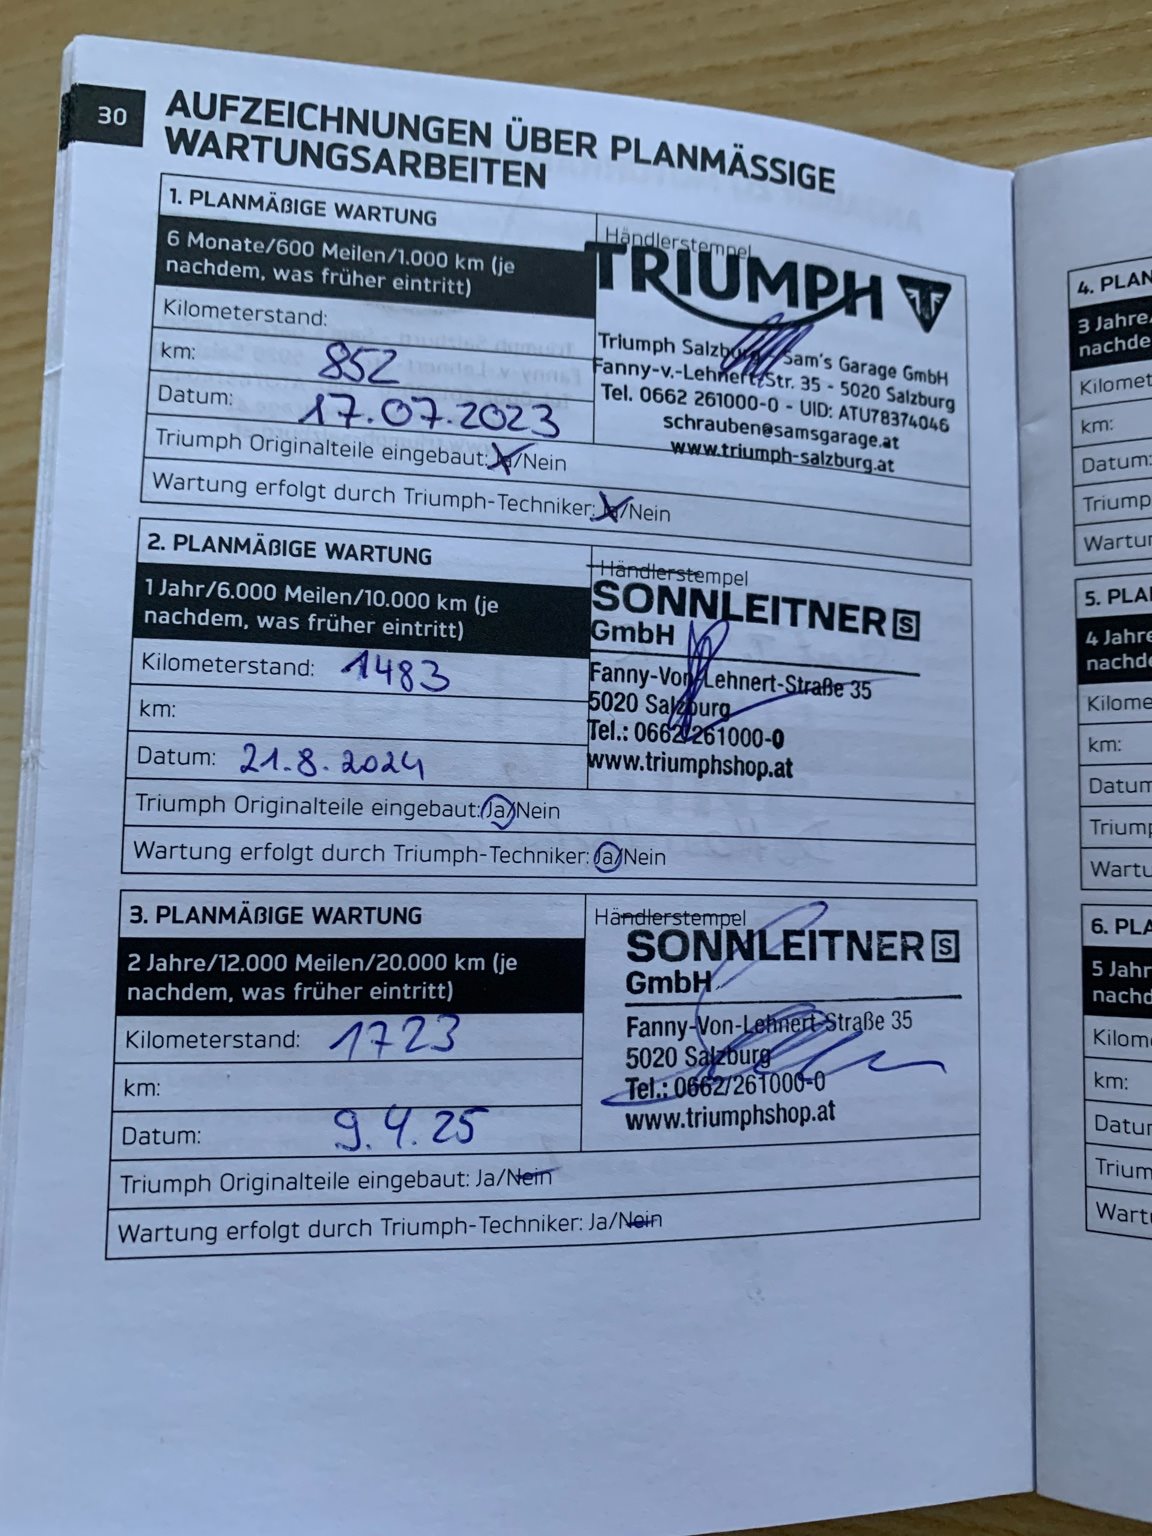 30
AUFZEICHNUNGEN ÜBER PLANMÄSSIGE
WARTUNGSARBEITEN
1. PLANMÄßIGE WARTUNG
6 Monate/600 Meilen/1.000 km (je
nachdem, was früher eintritt)
Kilometerstand:
km: 852
Datum: 17.07.2023
Händlerstempel
TRIUMPH
Triumph Salzburg - Sam's Garage GmbH
Fanny-v.-Lehnert-Str. 35 - 5020 Salzburg
Tel. 0662 261000-0 - UID: ATU78374046
schrauben@samsgarage.at
www.triumph-salzburg.at
Triumph Originalteile eingebaut: Ja/Nein
Wartung erfolgt durch Triumph-Techniker: Ja/Nein
2. PLANMÄßIGE WARTUNG
1 Jahr/6.000 Meilen/10.000 km (je
nachdem, was früher eintritt)
Kilometerstand: 1483
km:
Datum: 21.8.2024
Händlerstempel
SONNLEITNER S
GmbH
Fanny-Von-Lehnert-Straße 35
5020 Salzburg
Tel.: 0662/261000-0
www.triumphshop.at
Triumph Originalteile eingebaut: Ja/Nein
Wartung erfolgt durch Triumph-Techniker: Ja/Nein
3. PLANMÄßIGE WARTUNG
2 Jahre/12.000 Meilen/20.000 km (je
nachdem, was früher eintritt)
Kilometerstand: 1723
km:
Datum: 9.4.25
Händlerstempel
SONNLEITNER S
GmbH
Fanny-Von-Lehnert-Straße 35
5020 Salzburg
Tel.: 0662/261000-0
www.triumphshop.at
Triumph Originalteile eingebaut: Ja/Nein
Wartung erfolgt durch Triumph-Techniker: Ja/Nein
4. PLAN
3 Jahre/
nachde
Kilomet
km:
Datum:
Triump
Wartur
5. PLA
4 Jahre
nachde
Kilome
km:
Datum
Triump
Wartu
6. PLA
5 Jahr
nachd
Kilom
km:
Datu
Trium
Wart